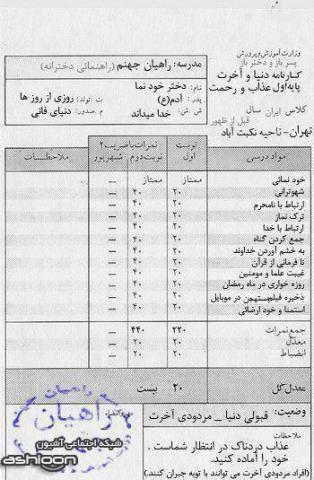 وزارت آموزش و پرورش
پسر باز و دختر باز
کارنامه دنیا و آخرت
پایه اول عذاب و رحمت
کلاس ایران سال
قبل از ظهور
مدرسه: راهیان جهنم (راهنمائی دخترانه)
نام: دختر خود نما
پدر: آدم(ع) ت: تولد: روزی از روز ها
ش.ش: خدا میداند م: صدور: دنیای فانی
تهران- ناحیه نکبت آباد
مواد درسی نوبت اول نمرات باضریب۲ نوبت دوم شهریور ملاحظات
خود نمائی ممتاز ممتاز ---
شهوترانی ۲۰ ۴۰ ---
ارتباط با نامحرم ۲۰ ۴۰ ---
ترک نماز ۲۰ ۴۰ ---
ارتباط با خدا ۲۰ ۴۰ ---
جمع کردن گناه ۲۰ ۴۰ ---
به خشم آوردن خداوند ۲۰ ۴۰ ---
نا فرمانی از قرآن ۲۰ ۴۰ ---
غیبت علما و مومنین ۲۰ ۴۰ ---
روزه خواری در ماه رمضان ۲۰ ۴۰ ---
ذخیره فیلم مستهجن در موبایل ۲۰ ۴۰ ---
استمنا و خود ارضائی ۲۰ ۴۰ ---
جمع نمرات ۲۲۰ ۴۴۰ ---
معدل ۲۰ ۲۰ ---
انضباط ۲۰ ۲۰ ---
معدل کل ۲۰ بیست
وضعیت: قبولی دنیا _ مردودی آخرت
ملاحظات
عذاب دردناک در انتظار شماست .
خود را آماده کنید.
(افراد مردودی آخرت می توانند با توبه جبران کنند.)
راهیان
شبکه اجتماعی آشیون
ashioon